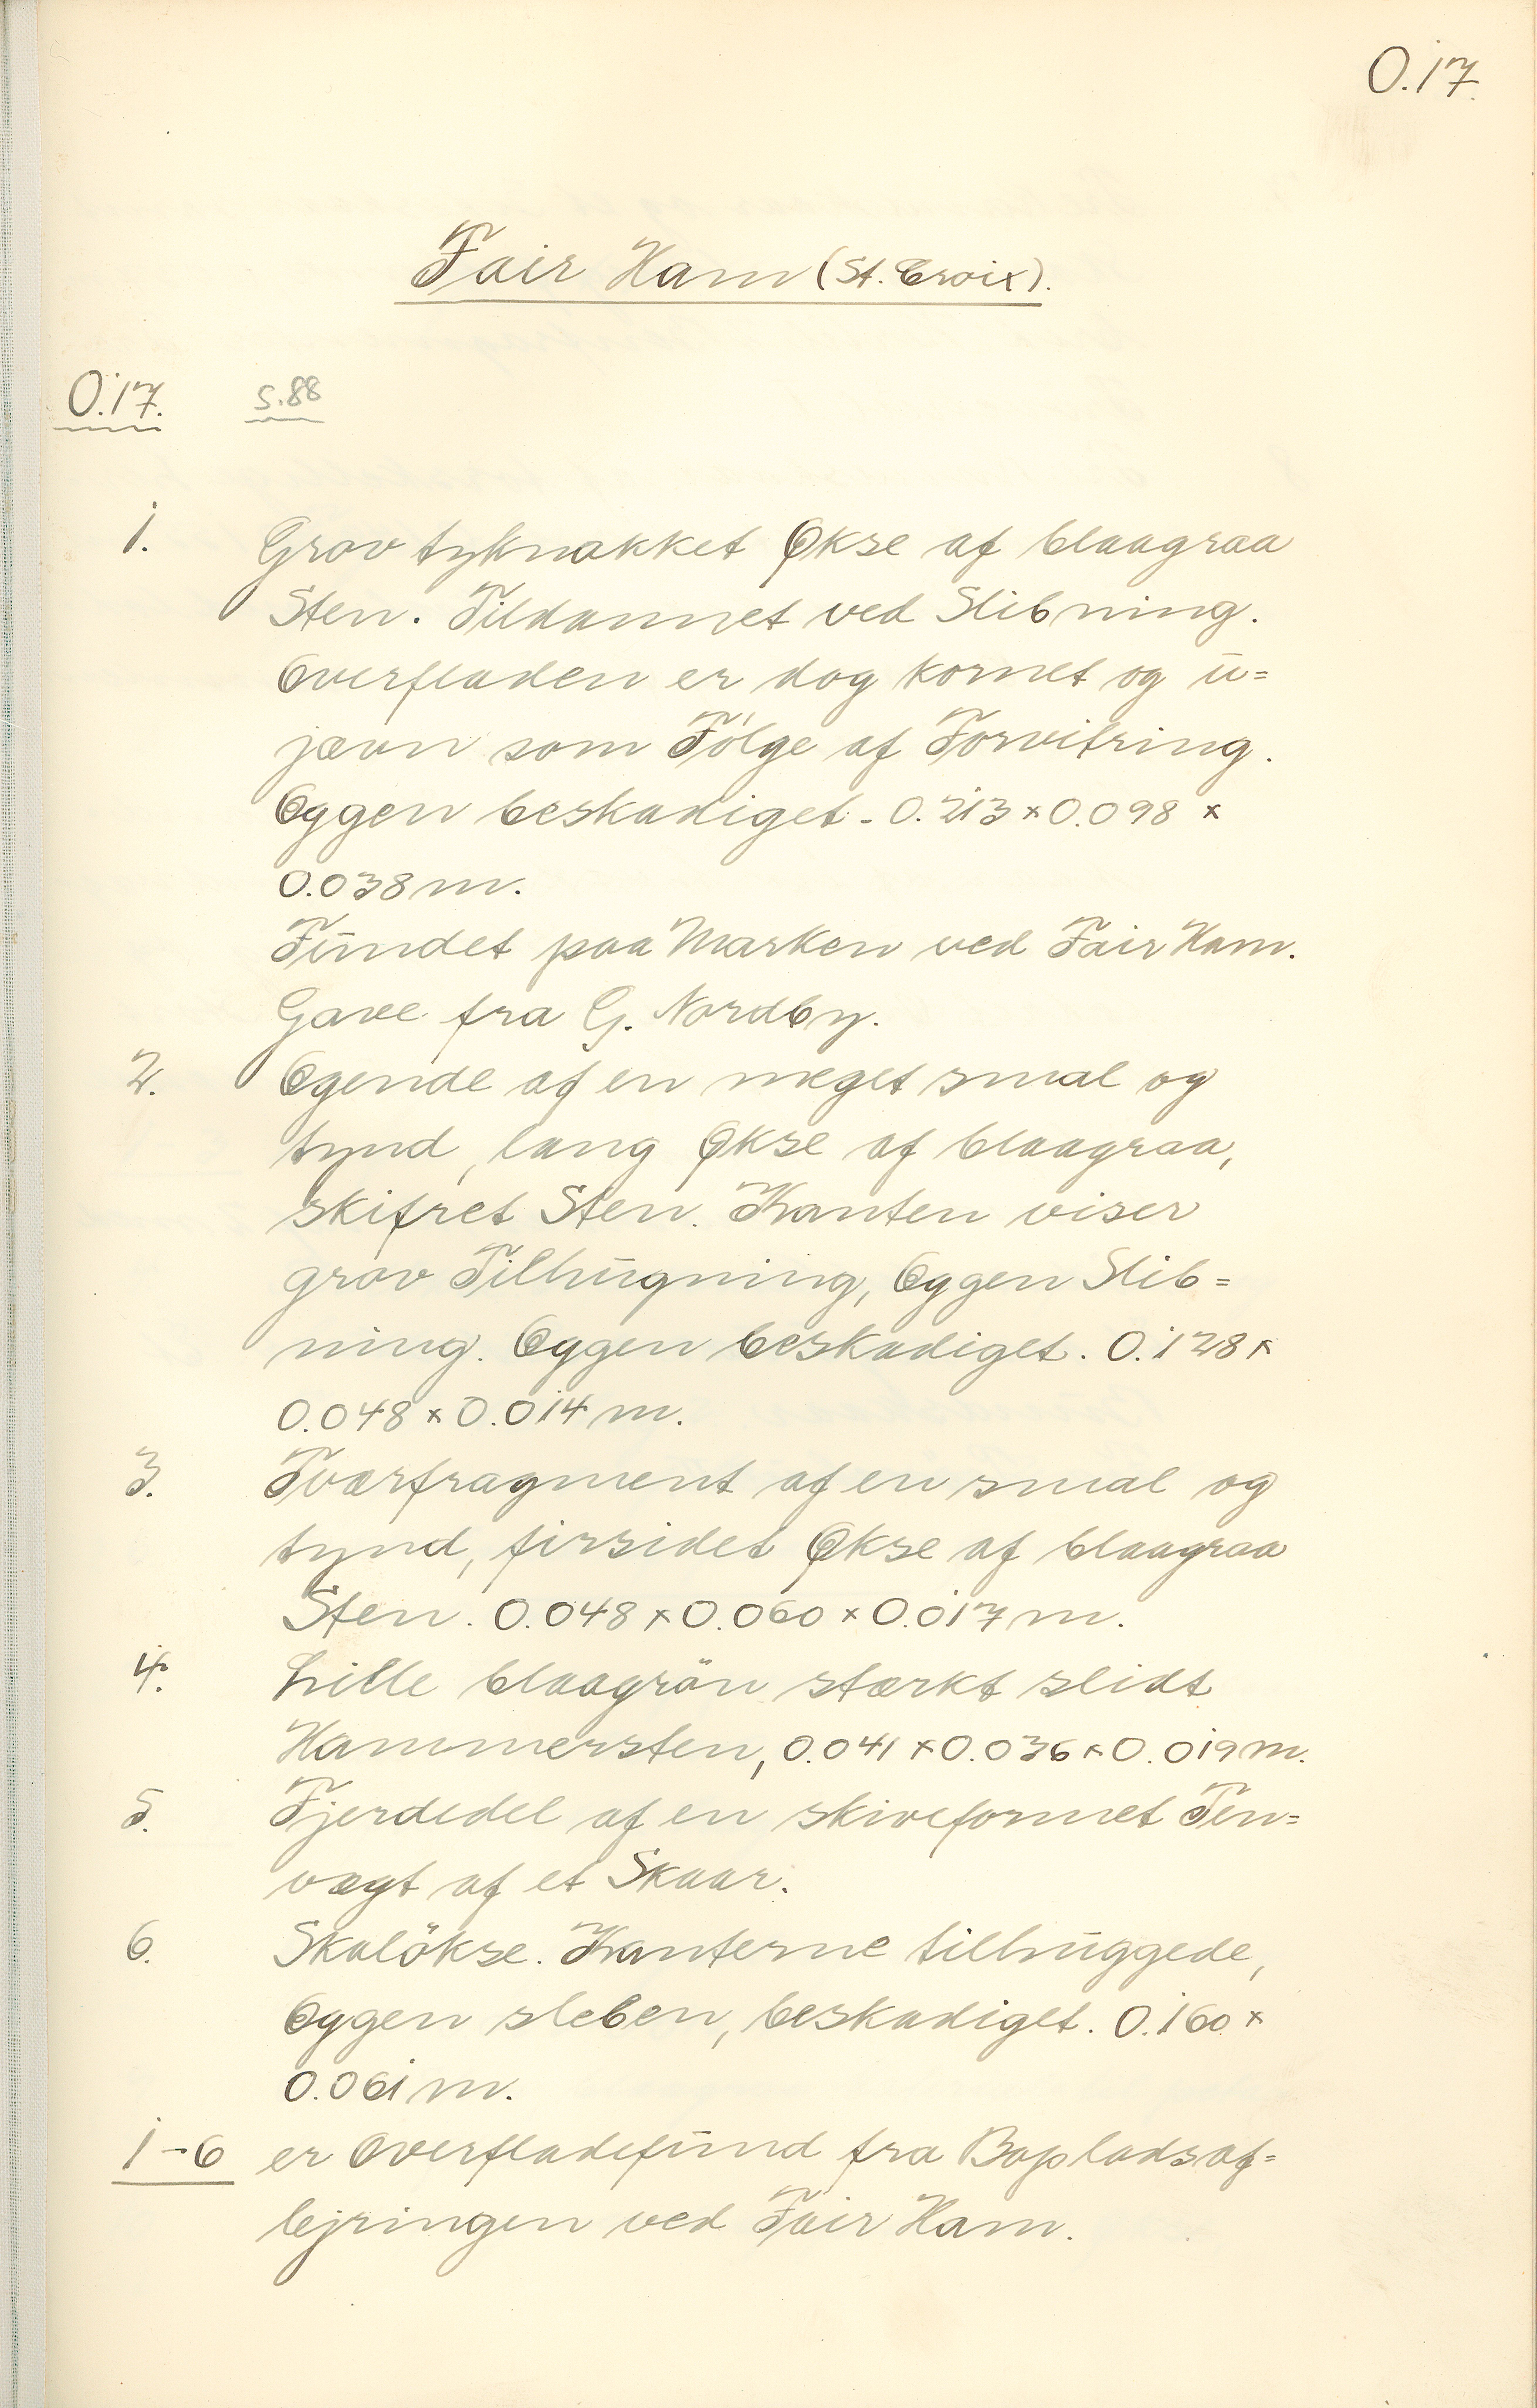 O.17.
Fair Ham (St. Croix).
O.17. S.88
1. Grov tyknakket Økse af blaagraa
Sten. Tildannet ved Slibning.
Overfladen er dog kornet og u=
jævn som Følge af Forvitring.
Eggen beskadiget. 0.213 x 0.098 x
0.038 m.
Fundet paa Marken ved Fair Ham.
Gave fra G. Nordby.
2. Egende af en meget smal og
tynd, lang Økse af blaagraa,
skifret Sten. Kanten viser
grov Tilhugning, Eggen Slib=
ning. Eggen beskadiget. 0.128 x
0.048 x 0.014 m.
3. Tværfragment af en smal og
tynd, firsidet Økse af blaagraa
Sten. 0.048 x 0.060 x 0.017 m.
4. Lille blaagrön stærkt slidt
Hammersten, 0.041 x 0.036 x 0.019 m.
5. Fjerdedel af en skiveformet Ten=
vægt af et Skaar.
6. Skalökse. Kanterne tilhuggede,
Eggen sleben, beskadiget. 0.160 x
0.061 m.
1-6 er Overfladefund fra Bopladsaf=
lejringen ved Fair Ham.